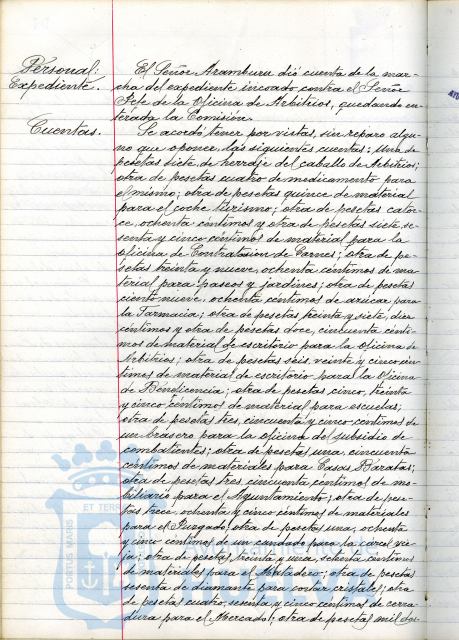 Personal:
Expediente.
El Señor Aramburu dió cuenta de la mar-
cha del expediente incoado contra el Señor
Jefe de la Oficina de Arbitrios, quedando en-
terada la Comisión.
Cuentas.
Se acordó tener por vistas, sin reparo algu-
no que oponer, las siguientes cuentas: Una de
pesetas siete, de herraje del caballo de Arbitrios;
otra de pesetas cuatro de medicamento para
el mismo; otra de pesetas quince de material
para el coche turismo; otra de pesetas cator-
ce, ochenta céntimos y otra de pesetas siete, se-
senta y cinco céntimos de material para la
oficina de Contratasion de Carnes; otra de pe-
setas treinta y nueve, ochenta céntimos de ma-
terial para paseos y jardines; otra de pesetas
ciento nueve, ochenta céntimos de azúcar para
la Farmacia; otra de pesetas treinta y siete, diez
céntimos y otra de pesetas doce, cincuenta cénti-
mos de material de escritorio para la Oficina de
Arbitrios; otra de pesetas seis, veinte y cinco cén-
timos de material de escritorio para la Oficina
de Beneficencia; otra de pesetas cinco, treinta
y cinco céntimos de material para escuelas;
otra de pesetas tres, cincuenta y cinco céntimos de
un brasero para la oficina del subsidio de
combatientes; otra de pesetas una, cincuenta
céntimos de materiales para Casas Baratas;
otra de pesetas tres cincuenta céntimos de mo-
biliario para el Ayuntamiento; otra de pese-
tas trece, ochenta y cinco céntimos de materiales
para el Juzgado; otra de pesetas una, ochenta
y cinco céntimos de un candado para la carcel vie-
ja; otra de pesetas treinta y una, ochenta céntimos
de materiales para el Matadero; otra de pesetas
sesenta de diamante para cortar cristales; otra
de pesetas cuatro, sesenta y cinco céntimos de cerra-
dura para el Mercado; otra de pesetas mil dos-
ET TERR
PORTUS MARIS